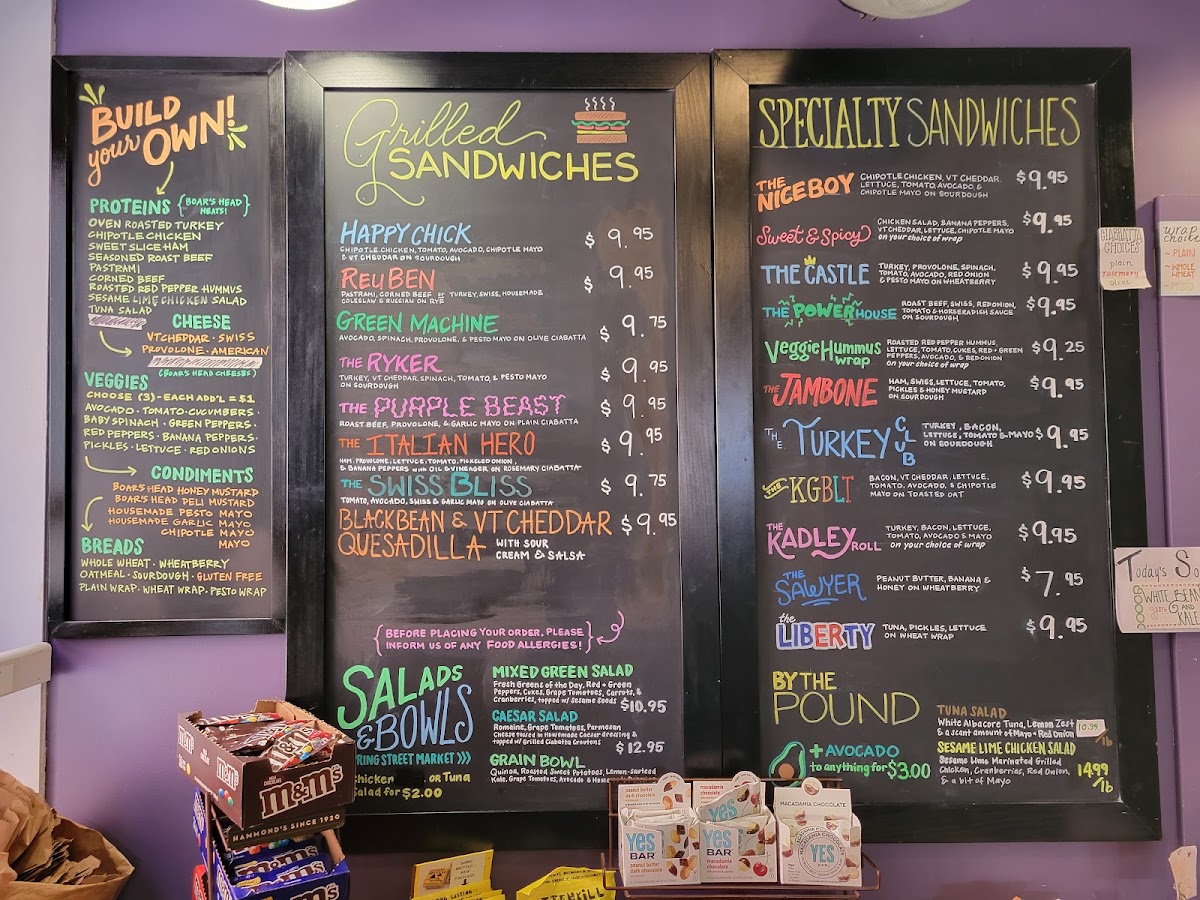 BUILD
your OWN!
PROTEINS {BOAR'S HEAD
MEATS!}
OVEN ROASTED TURKEY
CHIPOTLE CHICKEN
SWEET SLICE HAM
SEASONED ROAST BEEF
PASTRAMI
CORNED BEEF
ROASTED RED PEPPER HUMMUS
SESAME LIME CHICKEN SALAD
TUNA SALAD
CHEESE
VT CHEDDAR · SWISS
PROVOLONE · AMERICAN
(BOAR'S HEAD CHEESES)
VEGGIES
CHOOSE (3) - EACH ADD'L = $1
AVOCADO · TOMATO · CUCUMBERS ·
BABY SPINACH · GREEN PEPPERS ·
RED PEPPERS · BANANA PEPPERS ·
PICKLES · LETTUCE · RED ONIONS
CONDIMENTS
BOAR'S HEAD HONEY MUSTARD
BOAR'S HEAD DELI MUSTARD
HOUSEMADE PESTO MAYO
HOUSEMADE GARLIC MAYO
CHIPOTLE MAYO
MAYO
BREADS
WHOLE WHEAT · WHEATBERRY
OATMEAL · SOURDOUGH · GLUTEN FREE
PLAIN WRAP · WHEAT WRAP · PESTO WRAP
Grilled
SANDWICHES
HAPPY CHICK $ 9.95
CHIPOTLE CHICKEN, TOMATO, AVOCADO, CHIPOTLE MAYO
& VT CHEDDAR ON SOURDOUGH
REUBEN $ 9.95
PASTRAMI, CORNED BEEF or TURKEY, SWISS, HOUSEMADE
COLESLAW & RUSSIAN ON RYE
GREEN MACHINE $ 9.75
AVOCADO, SPINACH, PROVOLONE, & PESTO MAYO ON OLIVE CIABATTA
THE RYKER $ 9.95
TURKEY, VT CHEDDAR, SPINACH, TOMATO, & PESTO MAYO
ON SOURDOUGH
THE PURPLE BEAST $ 9.95
ROAST BEEF, PROVOLONE, & GARLIC MAYO ON PLAIN CIABATTA
THE ITALIAN HERO $ 9.95
HAM, PROVOLONE, LETTUCE, TOMATO, PICKLED ONION,
& BANANA PEPPERS with OIL & VINEAGER ON ROSEMARY CIABATTA
THE SWISS BLISS $ 9.75
TOMATO, AVOCADO, SWISS & GARLIC MAYO ON OLIVE CIABATTA
BLACKBEAN & VT CHEDDAR $9.95
QUESADILLA WITH SOUR
CREAM & SALSA
{BEFORE PLACING YOUR ORDER, PLEASE
INFORM US OF ANY FOOD ALLERGIES!}
SALADS
& BOWLS
RING STREET MARKET >>>
chicken or Tuna
salad for $2.00
MIXED GREEN SALAD
Fresh Greens of the Day, Red + Green
Peppers, Cukes, Grape Tomatoes, Carrots, &
Cranberries, topped w/ Sesame Seeds $10.95
CAESAR SALAD
Romaine, Grape Tomatoes, Parmesan
Cheese tossed in Homemade Caesar dressing &
topped w/ Grilled Ciabatta Croutons $12.95
GRAIN BOWL
Quinoa, Roasted Sweet Potatoes, Lemon-
Kale, Grape Tomatoes, Avocado &
SPECIALTY SANDWICHES
THE
NICE BOY CHIPOTLE CHICKEN, VT CHEDDAR, $9.95
LETTUCE, TOMATO, AVOCADO, &
CHIPOTLE MAYO ON SOURDOUGH
Sweet & Spicy CHICKEN SALAD, BANANA PEPPERS, $9.95
VT CHEDDAR, LETTUCE, CHIPOTLE MAYO
on your choice of wrap
THE CASTLE TURKEY, PROVOLONE, SPINACH, $9.95
TOMATO, AVOCADO, RED ONION
& PESTO MAYO ON WHEATBERRY
THE POWERHOUSE ROAST BEEF, SWISS, RED ONION, $9.95
TOMATO & HORSERADISH SAUCE
ON SOURDOUGH
Veggie Hummus
wrap ROASTED RED PEPPER HUMMUS $9.25
LETTUCE, TOMATO, CUKES, RED + GREEN
PEPPERS, AVOCADO, & RED ONION
on your choice of wrap
THE JAMBONE HAM, SWISS, LETTUCE, TOMATO, $9.95
PICKLES & HONEY MUSTARD
ON SOURDOUGH
THE TURKEY CLUB TURKEY, BACON, $9.95
LETTUCE, TOMATO & MAYO
ON SOURDOUGH
THE KGBLT BACON, VT CHEDDAR, LETTUCE, $9.95
TOMATO, AVOCADO, & CHIPOTLE
MAYO ON TOASTED OAT
THE
KADLEY ROLL TURKEY, BACON, LETTUCE, $9.95
TOMATO, AVOCADO & MAYO
on your choice of wrap
THE
SAWYER PEANUT BUTTER, BANANA & $7.95
HONEY ON WHEATBERRY
the
LIBERTY TUNA, PICKLES, LETTUCE $9.95
ON WHEAT WRAP
BY THE
POUND
TUNA SALAD
White Albacore Tuna, Lemon Zest 10.99
& a scant amount of Mayo + Red Onion /lb
SESAME LIME CHICKEN SALAD
Sesame Lime Marinated Grilled
Chicken, Cranberries, Red Onion, 14.99
& a bit of Mayo /lb
+ AVOCADO
to anything for $3.00
CIABATTA
CHOICES
plain
rosemary
olive
wrap
choice
- PLAIN
- WHOLE
WHEAT
- PESTO
Today's So
WHITE BEAN
AND
KALE
m&m's
HAMMOND'S SINCE 1920
m&m's
peanut butter
dark chocolate
macadamia
chocolate
MACADAMIA CHOCOLATE
YES
BAR
YES
YES
BAR
YES